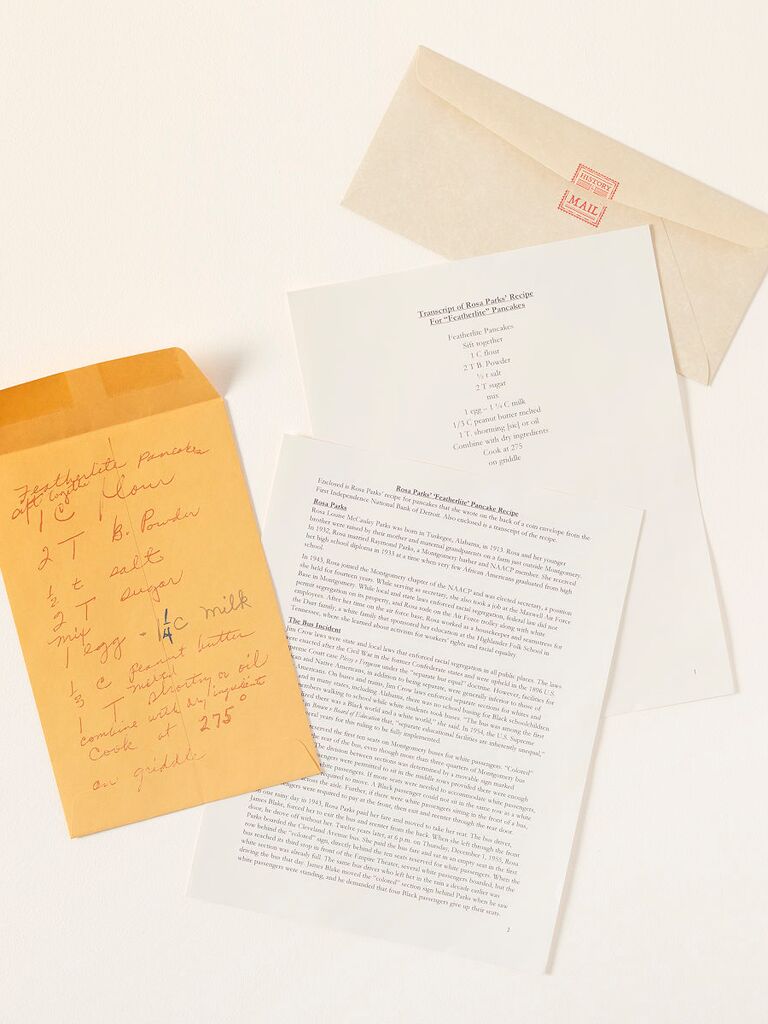 HISTORY
BY
MAIL
Transcript of Rosa Parks' Recipe
For "Featherlite" Pancakes
Featherlite Pancakes
Sift together
1 C flour
2 T B. Powder
½ t salt
2 T sugar
mix
1 egg – 1 ¼ C milk
1/3 C peanut butter melted
1 T. shortning [sic] or oil
Combine with dry ingredients
Cook at 275
on griddle
1
Featherlite Pancakes
sift together
1 C flour
2 T B. Powder
½ t salt
2 T sugar
mix
1 egg - 1¼ C milk
⅓ C peanut butter
melted
1 T shortning or oil
combine with dry ingredients
Cook at 275°
on griddle
Rosa Parks' 'Featherlite' Pancake Recipe
Enclosed is Rosa Parks' recipe for pancakes that she wrote on the back of a coin envelope from the
First Independence National Bank of Detroit. Also enclosed is a transcript of the recipe.
Rosa Parks
Rosa Louise McCauley Parks was born in Tuskegee, Alabama, in 1913. Rosa and her younger
brother were raised by their mother and maternal grandparents on a farm just outside Montgomery.
In 1932, Rosa married Raymond Parks, a Montgomery barber and NAACP member. She received
her high school diploma in 1933 at a time when very few African Americans graduated from high
school.
In 1943, Rosa joined the Montgomery chapter of the NAACP and was elected secretary, a position
she held for fourteen years. While serving as secretary, she also took a job at the Maxwell Air Force
Base in Montgomery. While local and state laws enforced racial segregation, federal law did not
permit segregation on its property, and Rosa rode on the Air Force trolley along with white
employees. After her time on the air force base, Rosa worked as a housekeeper and seamstress for
the Durr family, a white family that sponsored her education at the Highlander Folk School in
Tennessee, where she learned about activism for workers' rights and racial equality
The Bus Incident
Jim Crow laws were state and local laws that enforced racial segregation in all public places. The laws
were enacted after the Civil War in the former Confederate states and were upheld in the 1896 U.S.
Court case Plessy v. Ferguson under the "separate but equal" doctrine. However, facilities for
and Native Americans, in addition to being separate, were generally inferior to those of
Americans. On buses and trains, Jim Crow laws enforced separate sections for whites and
in many states, including Alabama, there was no school busing for Black schoolchildren
walking to school while white students took buses. "The bus was among the first
there was a Black world and a white world," she said. In 1954, the U.S. Supreme
Brown v Board of Education that, "separate educational facilities are inherently unequal,"
years for this ruling to be fully implemented.
reserved the first ten seats on Montgomery buses for white passengers. "Colored"
the rear of the bus, even though more than three quarters of Montgomery bus
The division between sections was determined by a movable sign marked
were permitted to sit in the middle rows provided there were enough
white passengers. If more seats were needed to accommodate white passengers,
required to move. A Black person could not sit in the same row as a white
across the aisle. Further, if there were white passengers sitting in the front of a bus,
were required to pay at the front, then exit and reenter through the rear door.
one rainy day in 1943, Rosa Parks paid her fare and moved to take her seat. The bus driver,
James Blake, forced her to exit the bus and reenter from the back. When she left through the front
door, he drove off without her. Twelve years later, at 6 p.m. on Thursday, December 1, 1955, Rosa
Parks boarded the Cleveland Avenue bus. She paid the bus fare and sat in an empty seat in the first
row behind the "colored" sign, directly behind the ten seats reserved for white passengers. When the
bus reached its third stop in front of the Empire Theater, several white passengers boarded, but the
white section was already full. The same bus driver who left her in the rain a decade earlier was
driving the bus that day. James Blake moved the "colored" section sign behind Parks when he saw
white passengers were standing, and he demanded that four Black passengers give up their seats.
2